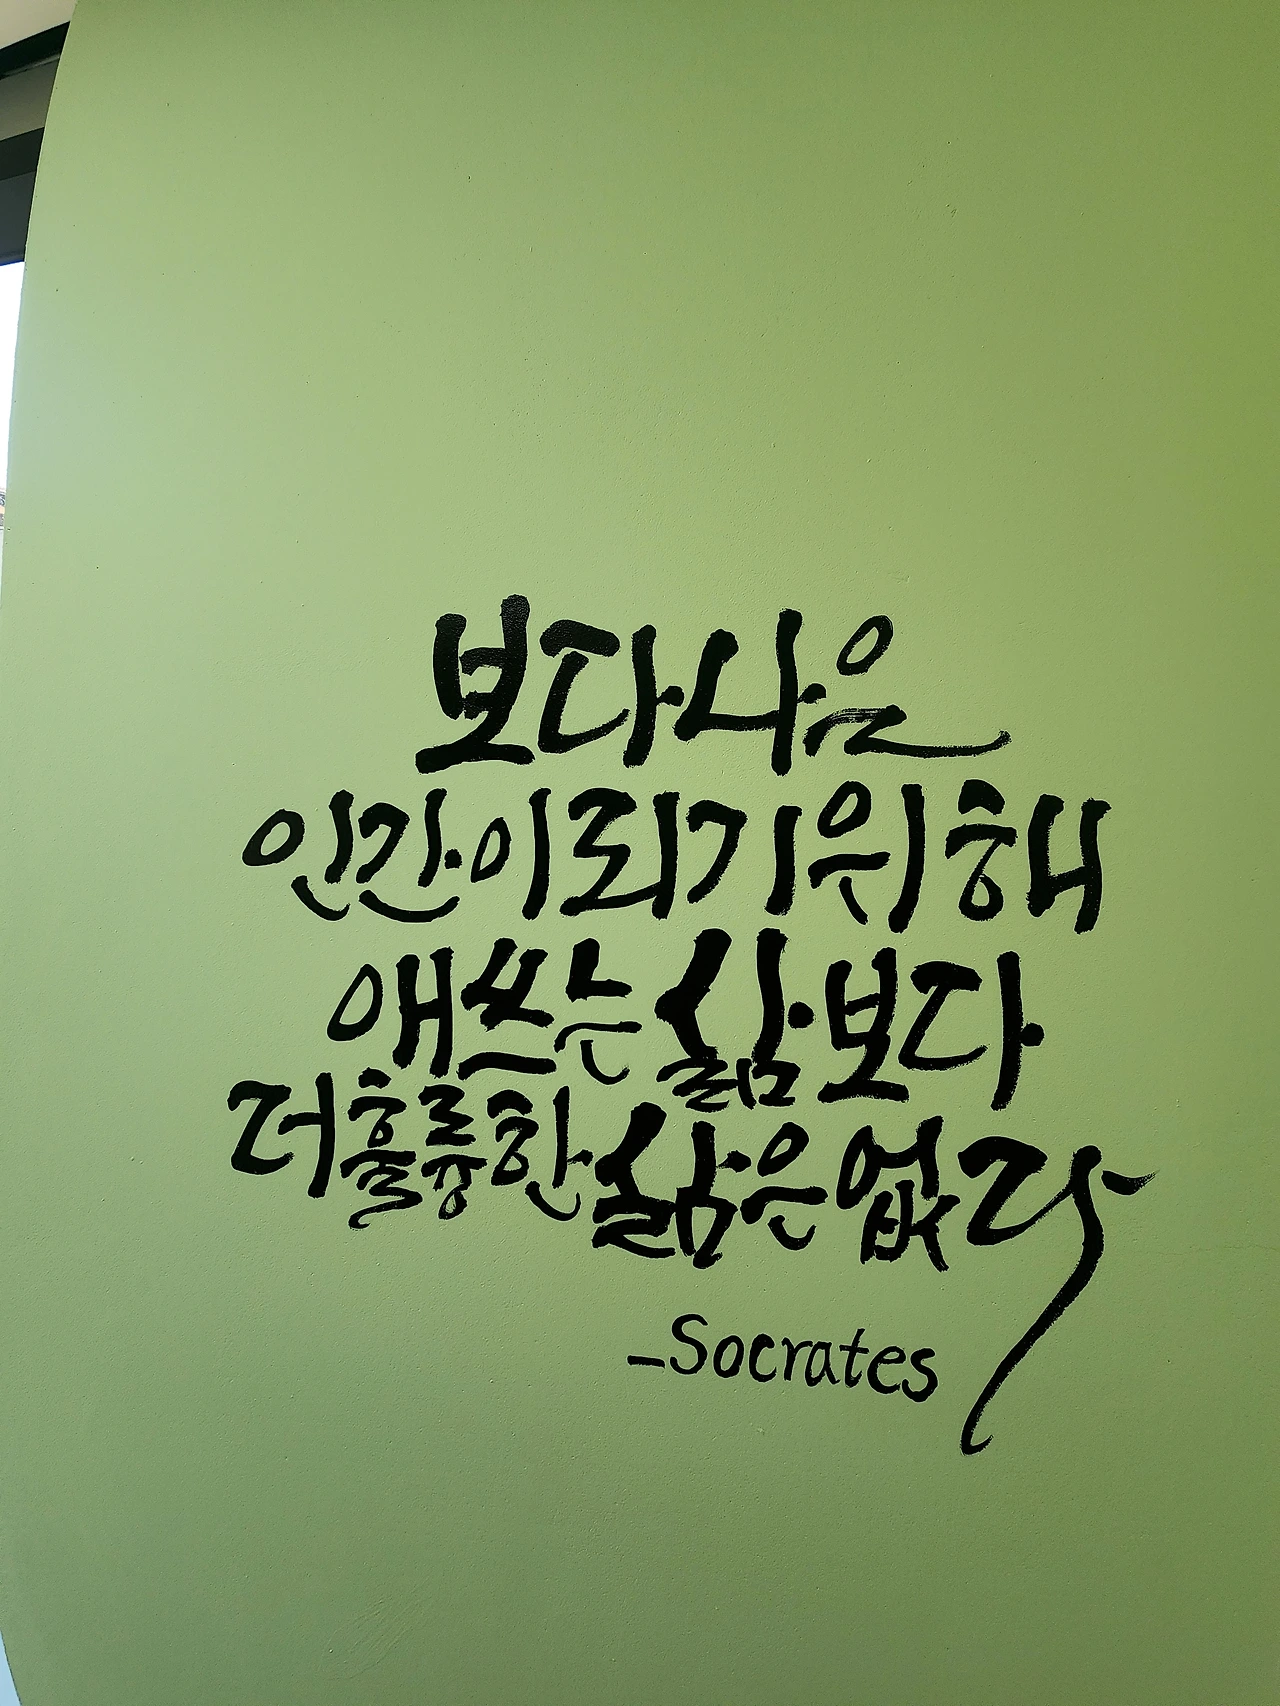 보다 나은
인간이 되기 위해
애쓰는 삶보다
더 훌륭한 삶은 없다
-Socrates